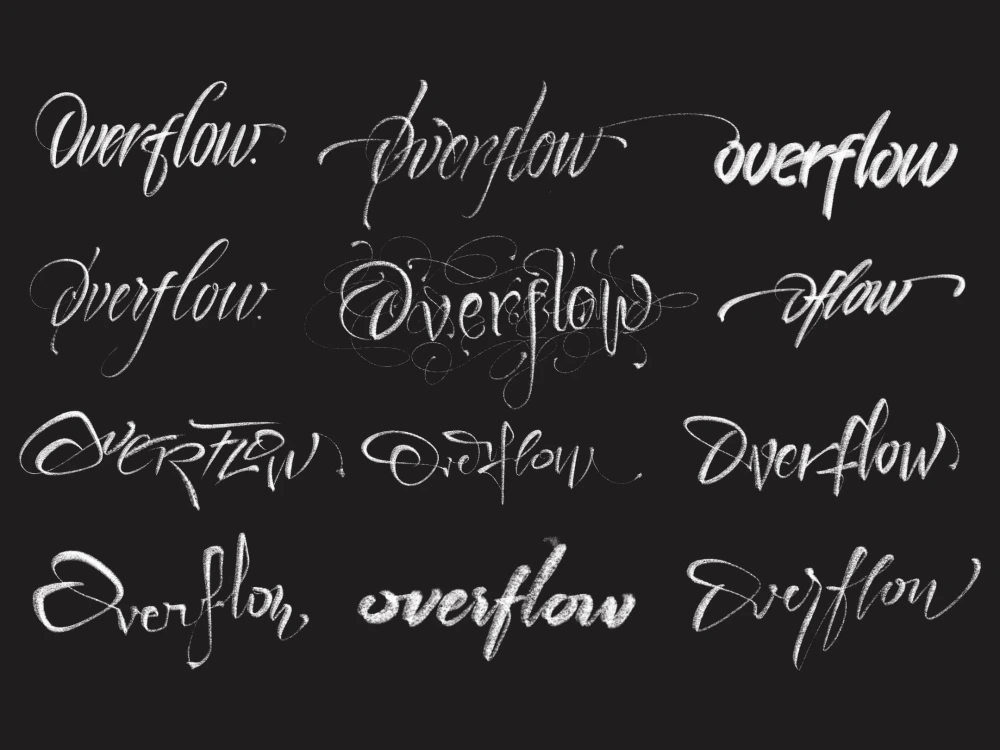 Overflow.
overflow
overflow
overflow.
Overflow
oflow
OVERFLOW
Overflow
Overflow.
Overflow,
overflow
Overflow